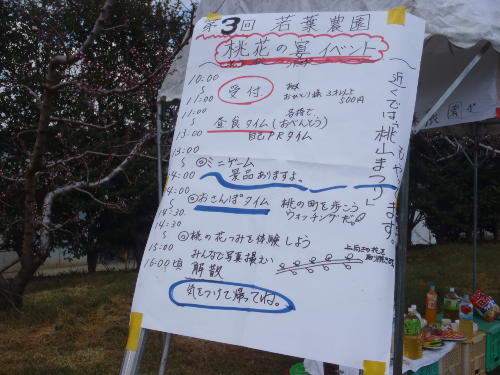 第3回 若葉農園
桃花の宴 イベント
10:00
〜
11:00
受付
500円
11:00
〜
13:00
昼食タイム(おべんとう)
自己PRタイム
13:00
〜
14:00
◎ミニゲーム
景品ありますよ。
14:00
〜
14:30
◎おさんぽタイム 桃の町を歩こう
ウォッチングだ。
14:30
〜
15:00
◎桃の花つみを体験しよう
みんなで写真撮む
16:00頃 解散
気をつけて帰ってね。
近くでは「桃山まつり」
もやってます。